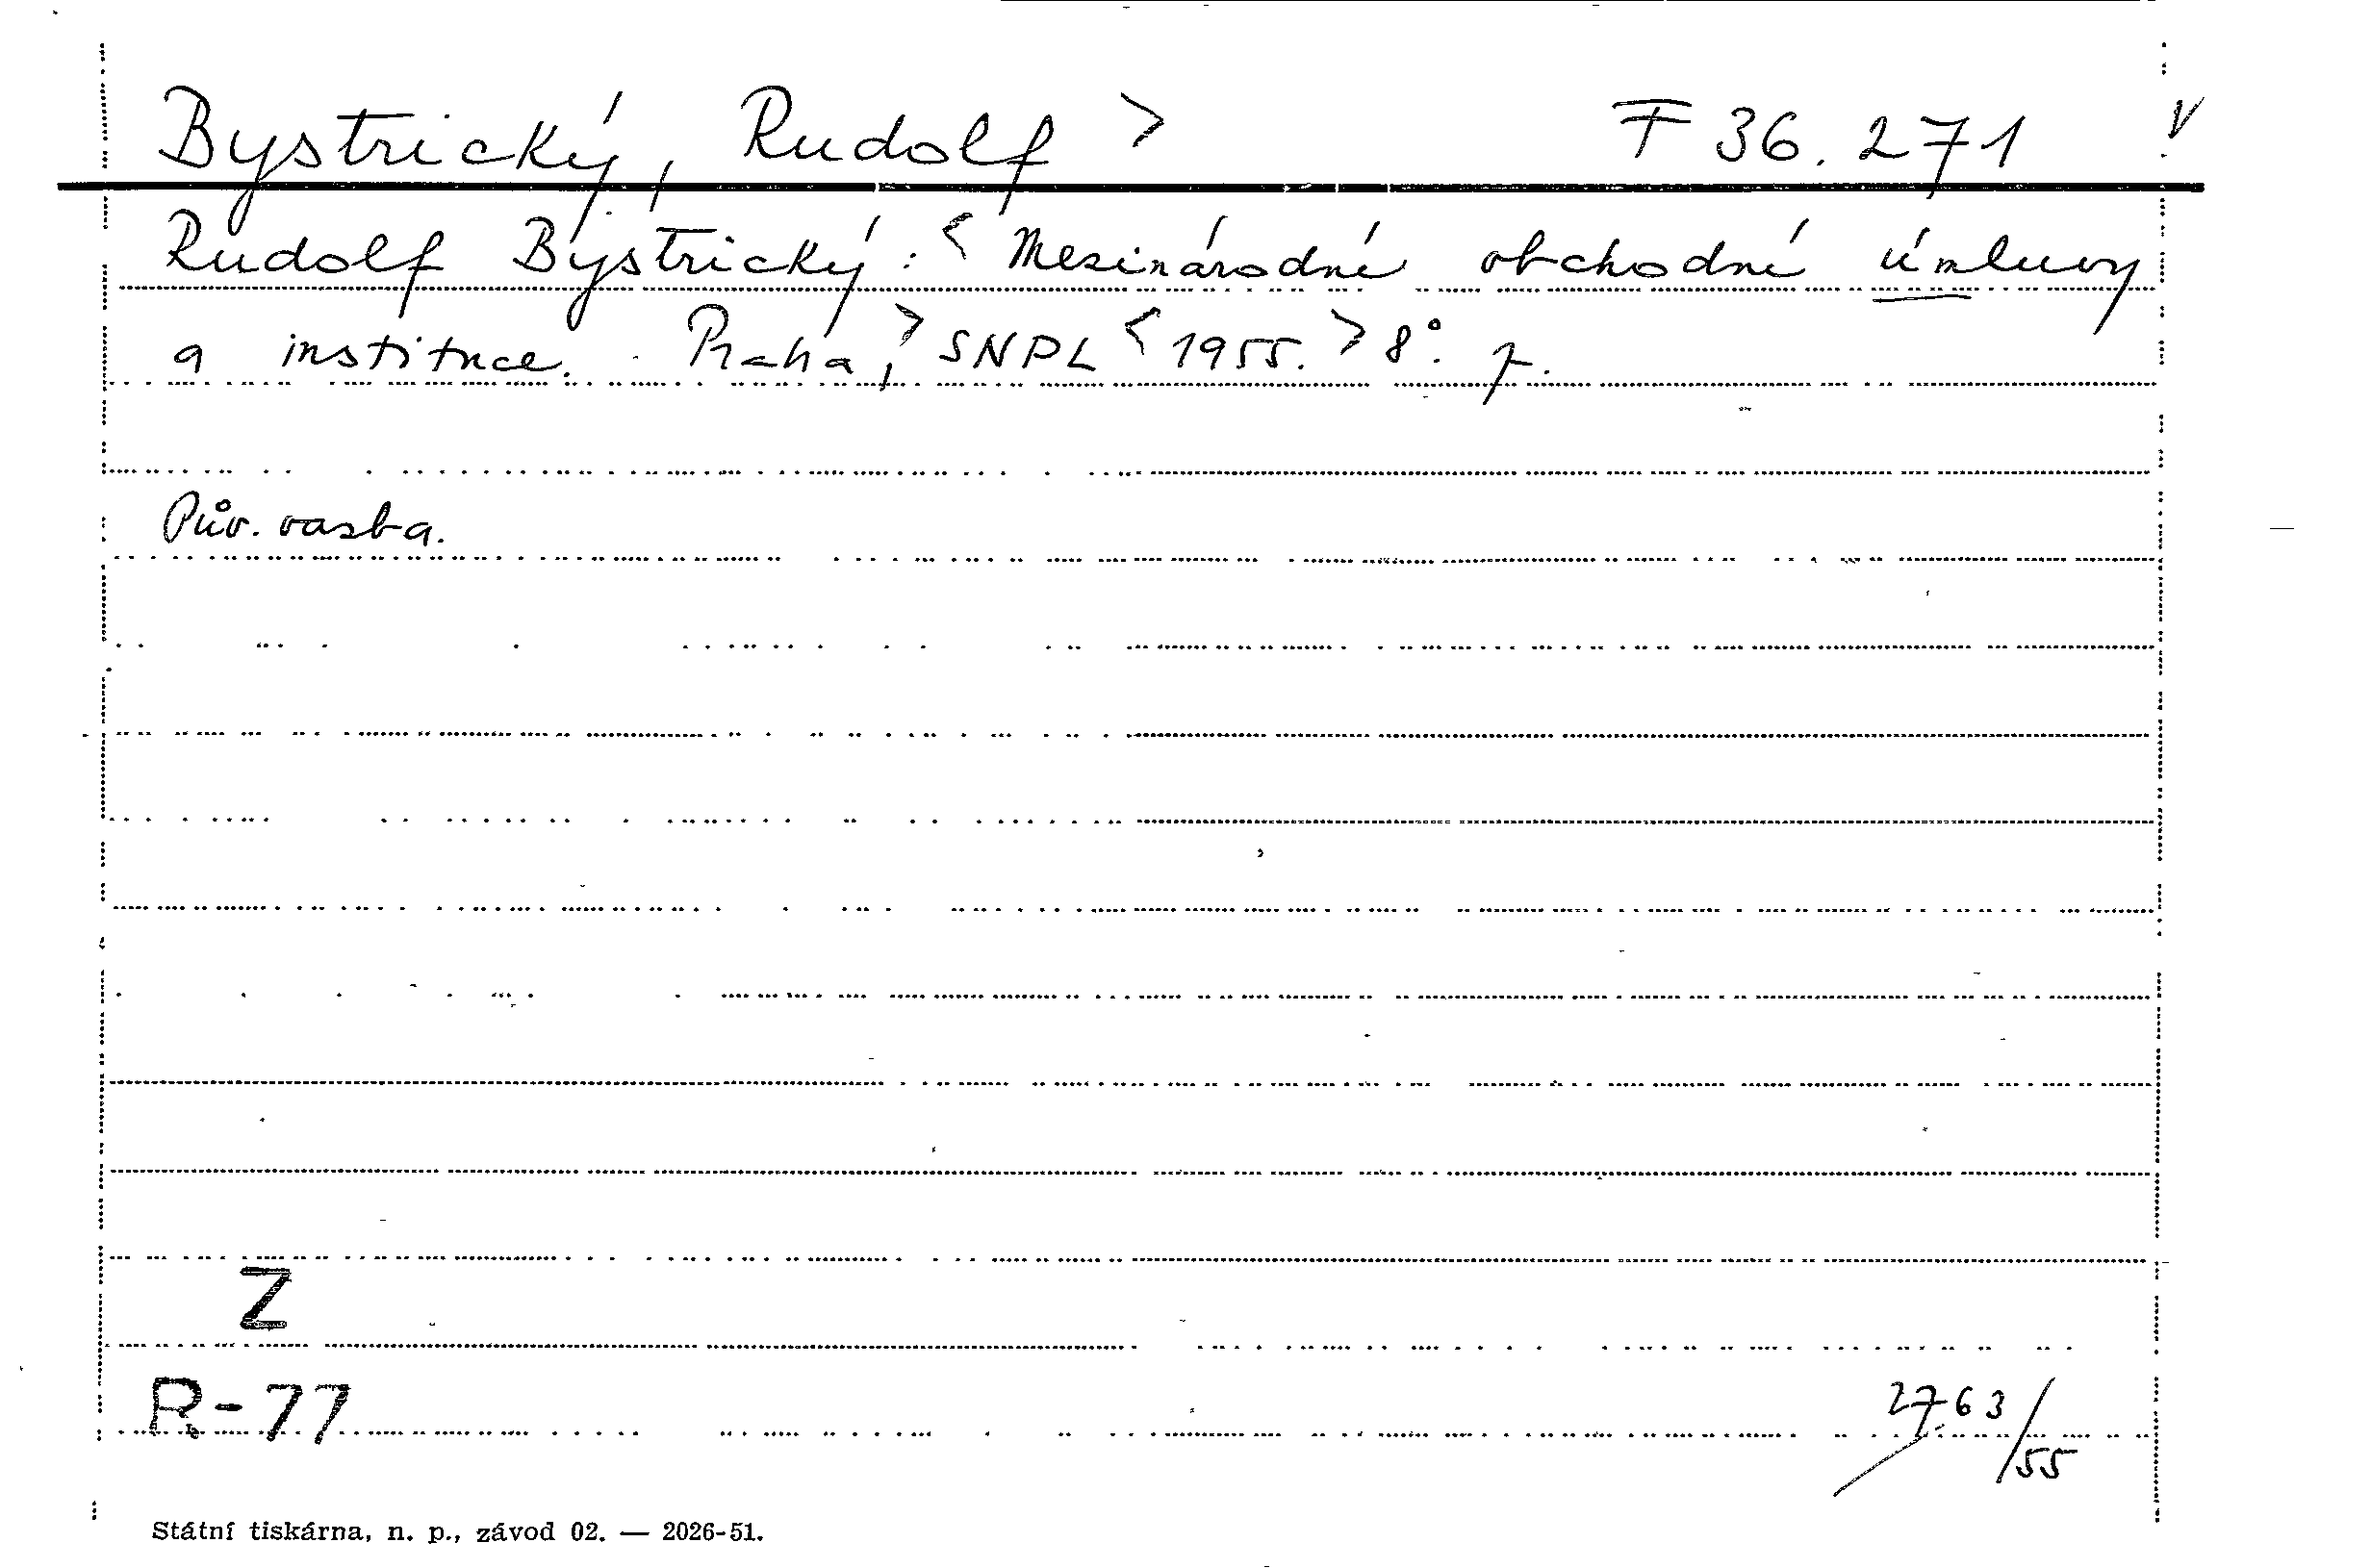 Bystrický, Rudolf > F 36.271 V
Rudolf Bystrický: < Mezinárodní obchodní úmluvy
a instituce. Praha, > SNPL < 1955. > 8°. 7.
Pův. vazba.
Z
R-77
2763/55
Státní tiskárna, n. p., závod 02. — 2026-51.